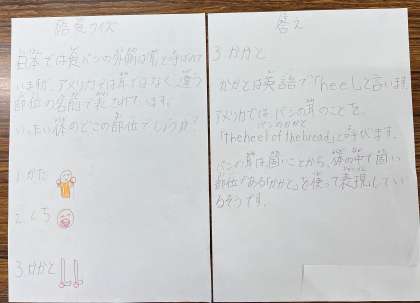 語気クイズ
日本では食パンの外側は耳と呼ばれて
いますが、アメリカでは耳ではなく違う
部位の名前で表されています。
いったい体のどこの部位でしょうか?
1.かた
2.くち
3.かかと
答え
3.かかと
かかとは英語で「heel」と言います
アメリカでは、パンの耳のことを、
パンのかかと
「the heel of the bread」と呼びます。
パンの耳は固いことから、体の中で固い
部位である「かかと」を使って表現してい
るそうです。